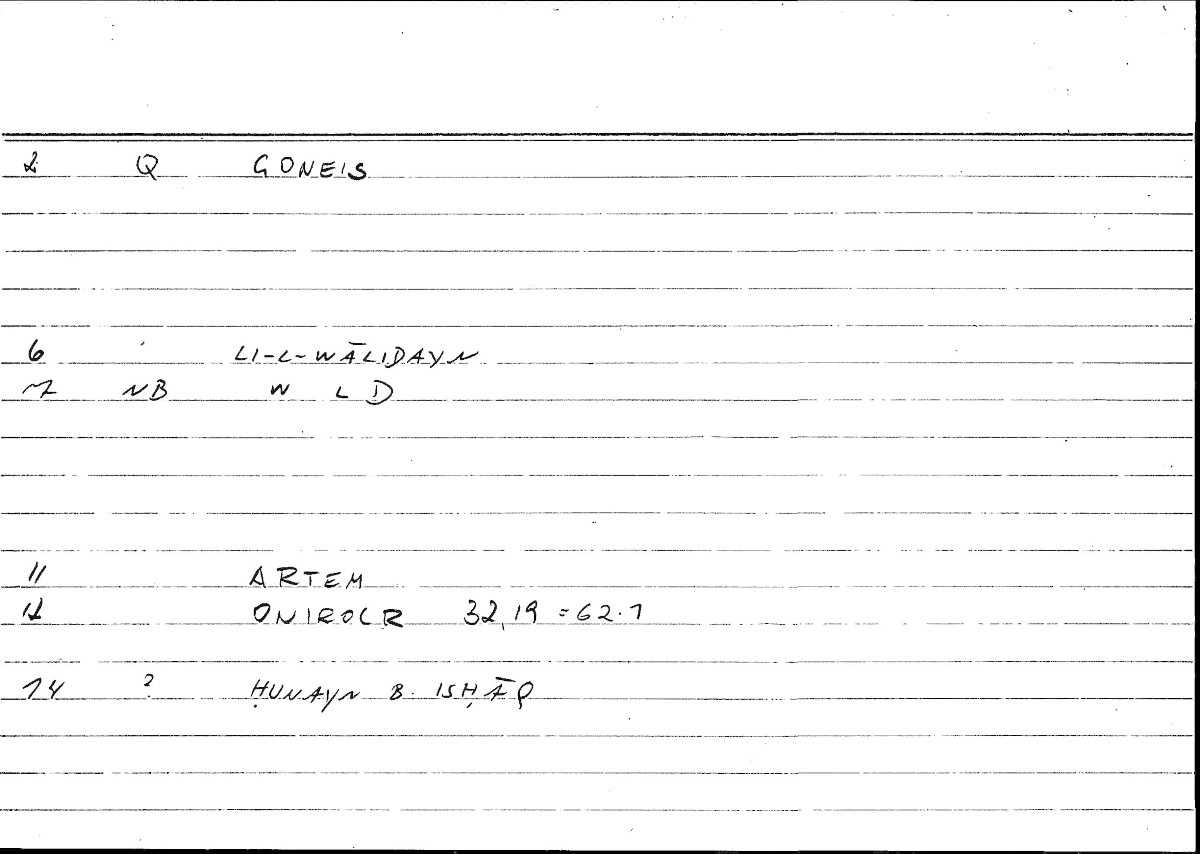 2 Q GONEIS
6 LI-L-WĀLIDAYN
7 NB W L D
11 ARTEM
12 ONIROCR 32,19 = 62.1
14 ? ḤUNAYN B. ISḤĀQ